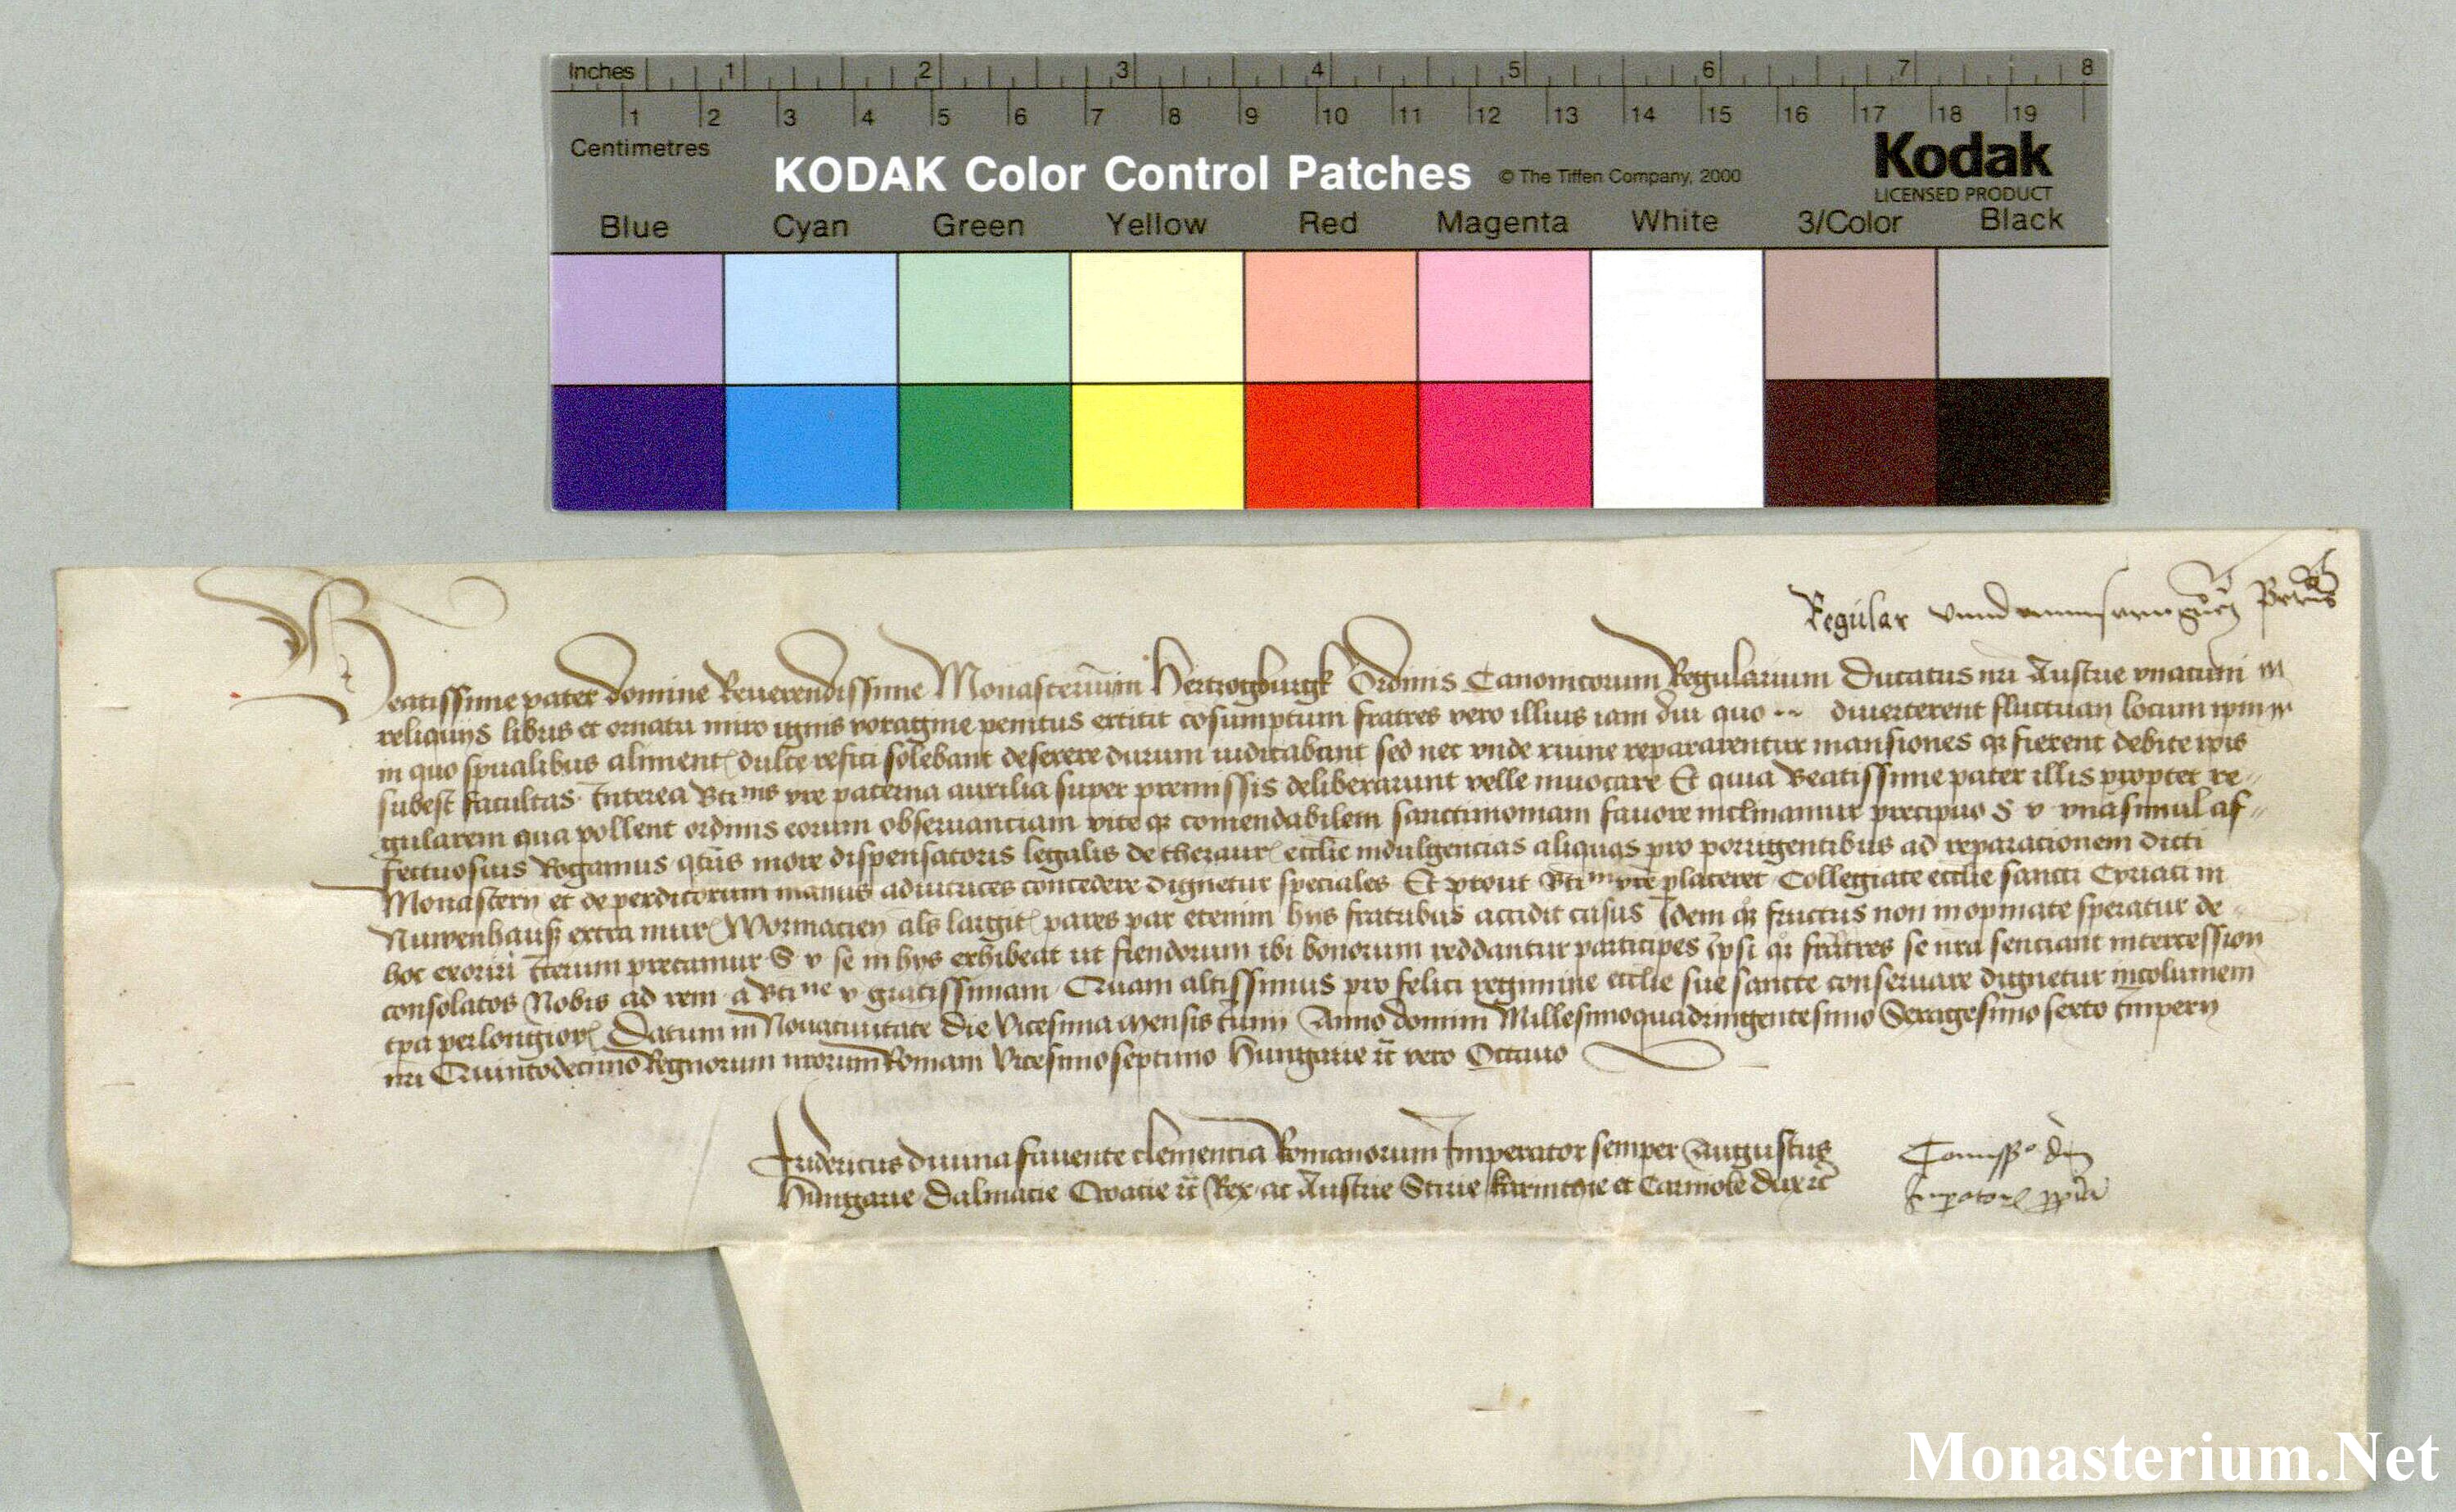 Inches 1 2 3 4 5 6 7 8
1 2 3 4 5 6 7 8 9 10 11 12 13 14 15 16 17 18 19
Centimetres
KODAK Color Control Patches © The Tiffen Company, 2000 Kodak
LICENSED PRODUCT
Blue Cyan Green Yellow Red Magenta White 3/Color Black
Regular
Beatissime pater domine Reuerendissime Monasterium Hertzogburgk Ordinis Canonicorum Regularium Ducatus nri Austrie vnacum
reliquijs libris et ornatu miro ignis voragine penitus extitit cosumptum fratres vero illius iam diu quo diuerterent fluctuan locum ipm
in quo spualibus aliment dulce refici solebant deserere durum iudicabant sed nec vnde ruine repararentur mansiones qz fierent debite ipis
subest facultas Interea Btimis vre paterna auxilia super premissis deliberarunt velle inuocare Et quia Beatissime pater illis propter re-
gularem qua pollent ordinis eorum obseruanciam vite qz comendabilem sanctimoniam fauore inclinamur precipuo S v vna simul af-
fectuosius Rogamus qtus more dispensatoris legalis de thezaur ecclie indulgencias aliquas pro porrigentibus ad reparacionem dicti
Monastery et deperditorum manus adiutrices concedere dignetur speciales Et prout placeret Collegiate ecclie sancti Cyriaci in
Nuwenhauß extra mur Wormacien als largit pares par etenim hijs fratribus accidit casus Idem qz fructus non inopinate speratur de
hoc exoriri Iterum precamur S v se in hys exhibeat ut fiendorum ibi bonorum reddantur participes Ipsi qz fratres se nra senciant intercession
consolatos Nobis ad rem a v gratissimam Quam altissimus pro felici regimine ecclie sue sancte conseruare dignetur incolumem
tpa per longior Datum in Nouaciuitate die Vicesima mensis Iunij Anno domini Millesimoquadringentesimo Sexagesimo sexto Imperij
nri Quintodecimo Regnorum nrorum Romani Vicesimoseptimo Hungarie rc vero Octauo
Fridericus diuina fauente clemencia Romanorum Imperator semper Augustus
Hungarie Dalmacie Croacie rc Rex ac Austrie Stirie Karinthie et Carniole dux rc
Comissio dni
Imperatoris ppria
Monasterium.Net